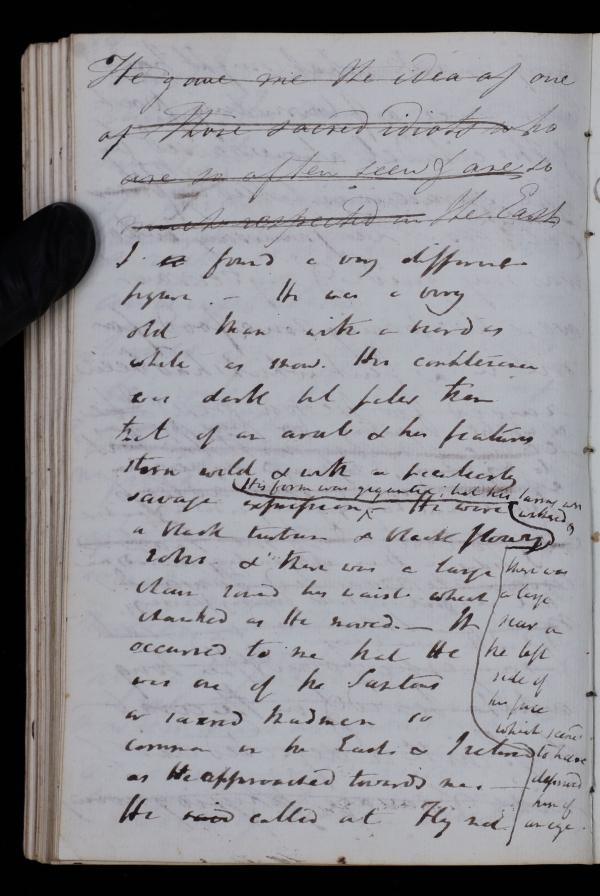 He gave me the idea of one
of those sacred idiots who
are so often seen & are so
much respected in the East
I found a very different
figure. — He was a very
old man with a beard as
white as snow. His countenance
was dark but paler than
that of an arab & his features
stern wild & with a peculiarly
His form was gigantic; but his
arms were withered
savage expression He wore
a black turban & black flowing
robes & there was a large
chain round his waist which
clanked as He moved. — It
occurred to me that He
was one of the Santons
or sacred madmen so
common in the East & I retired
as He approached towards me. —
He called out Fly not
there was
a large
scar on
the left
side of
his face
which seemed
to have
deprived
him of
an eye.